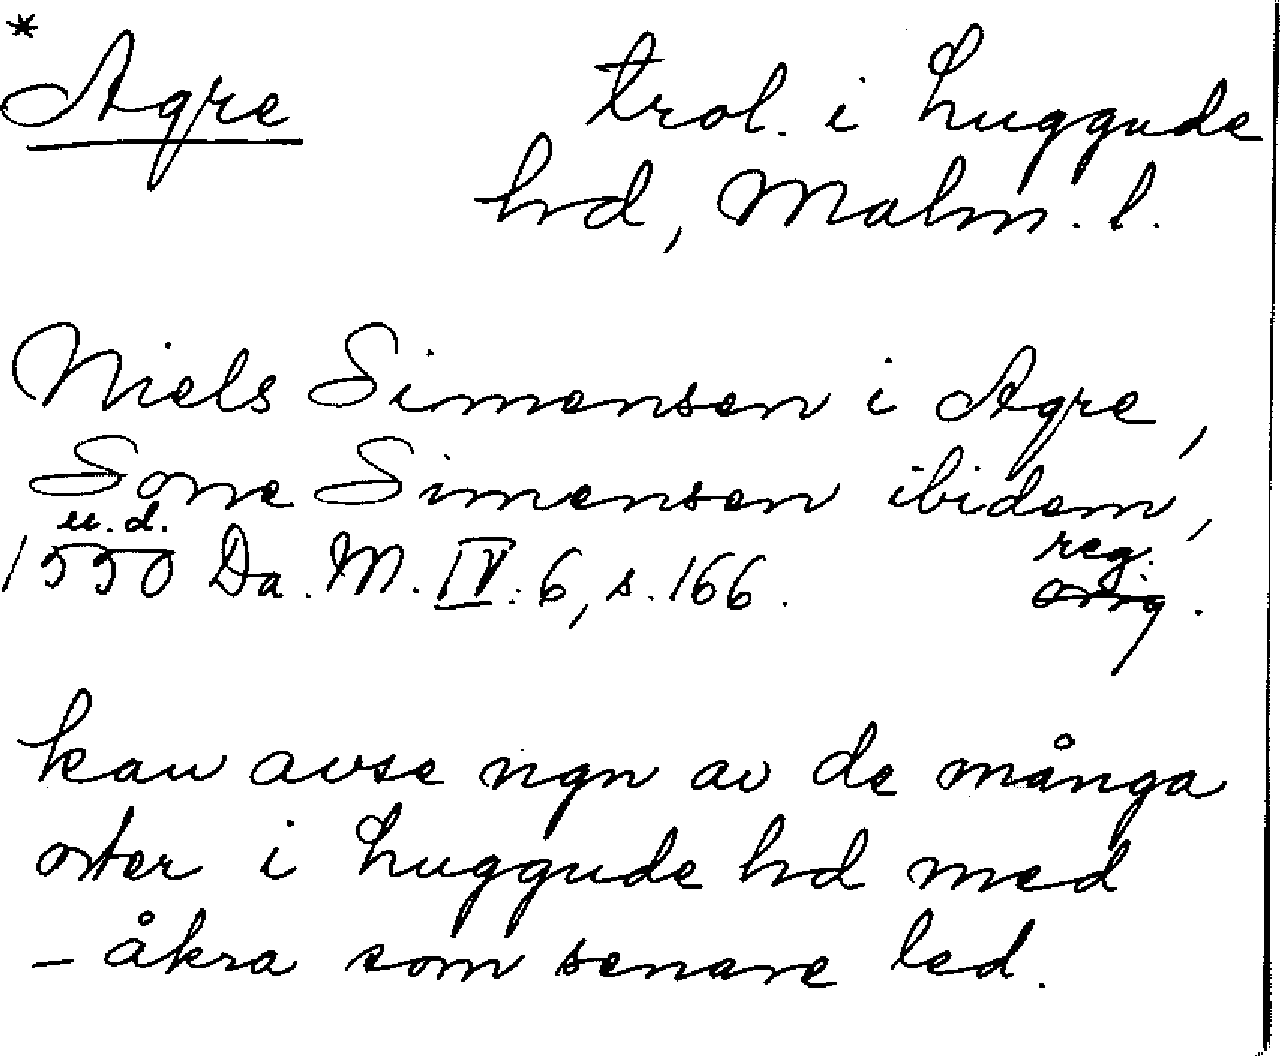 *
Agre trol. i Luggude
hd, Malm. l.
Niels Simensen i Agre,
Sone Simensen ibidem,
u. d. reg.
1550 Da. M. IV: 6, s. 166. orig.
kan avse ngn av de många
orter i Luggude hd med
- åkra som senare led.